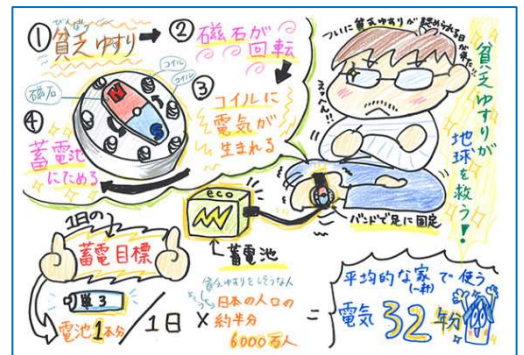 ① 貧乏ゆすり
びんぼう
② 磁石が
回転
③ コイルに
電気が
生まれる
④ 蓄電池
にためる
磁石
コイル
コイル
N
S
ついに貧乏ゆすりが認められる日が来た!!
えっへん!!
貧乏ゆすりが
地球を救う!
eco
蓄電池
バンドで足に固定
1日の
蓄電目標
単3
電池1本分/1日
×
貧乏ゆすりをしそうな人
日本の人口の
約半分
6000万人
=
平均的な家で使う
(一軒)
電気 32年分